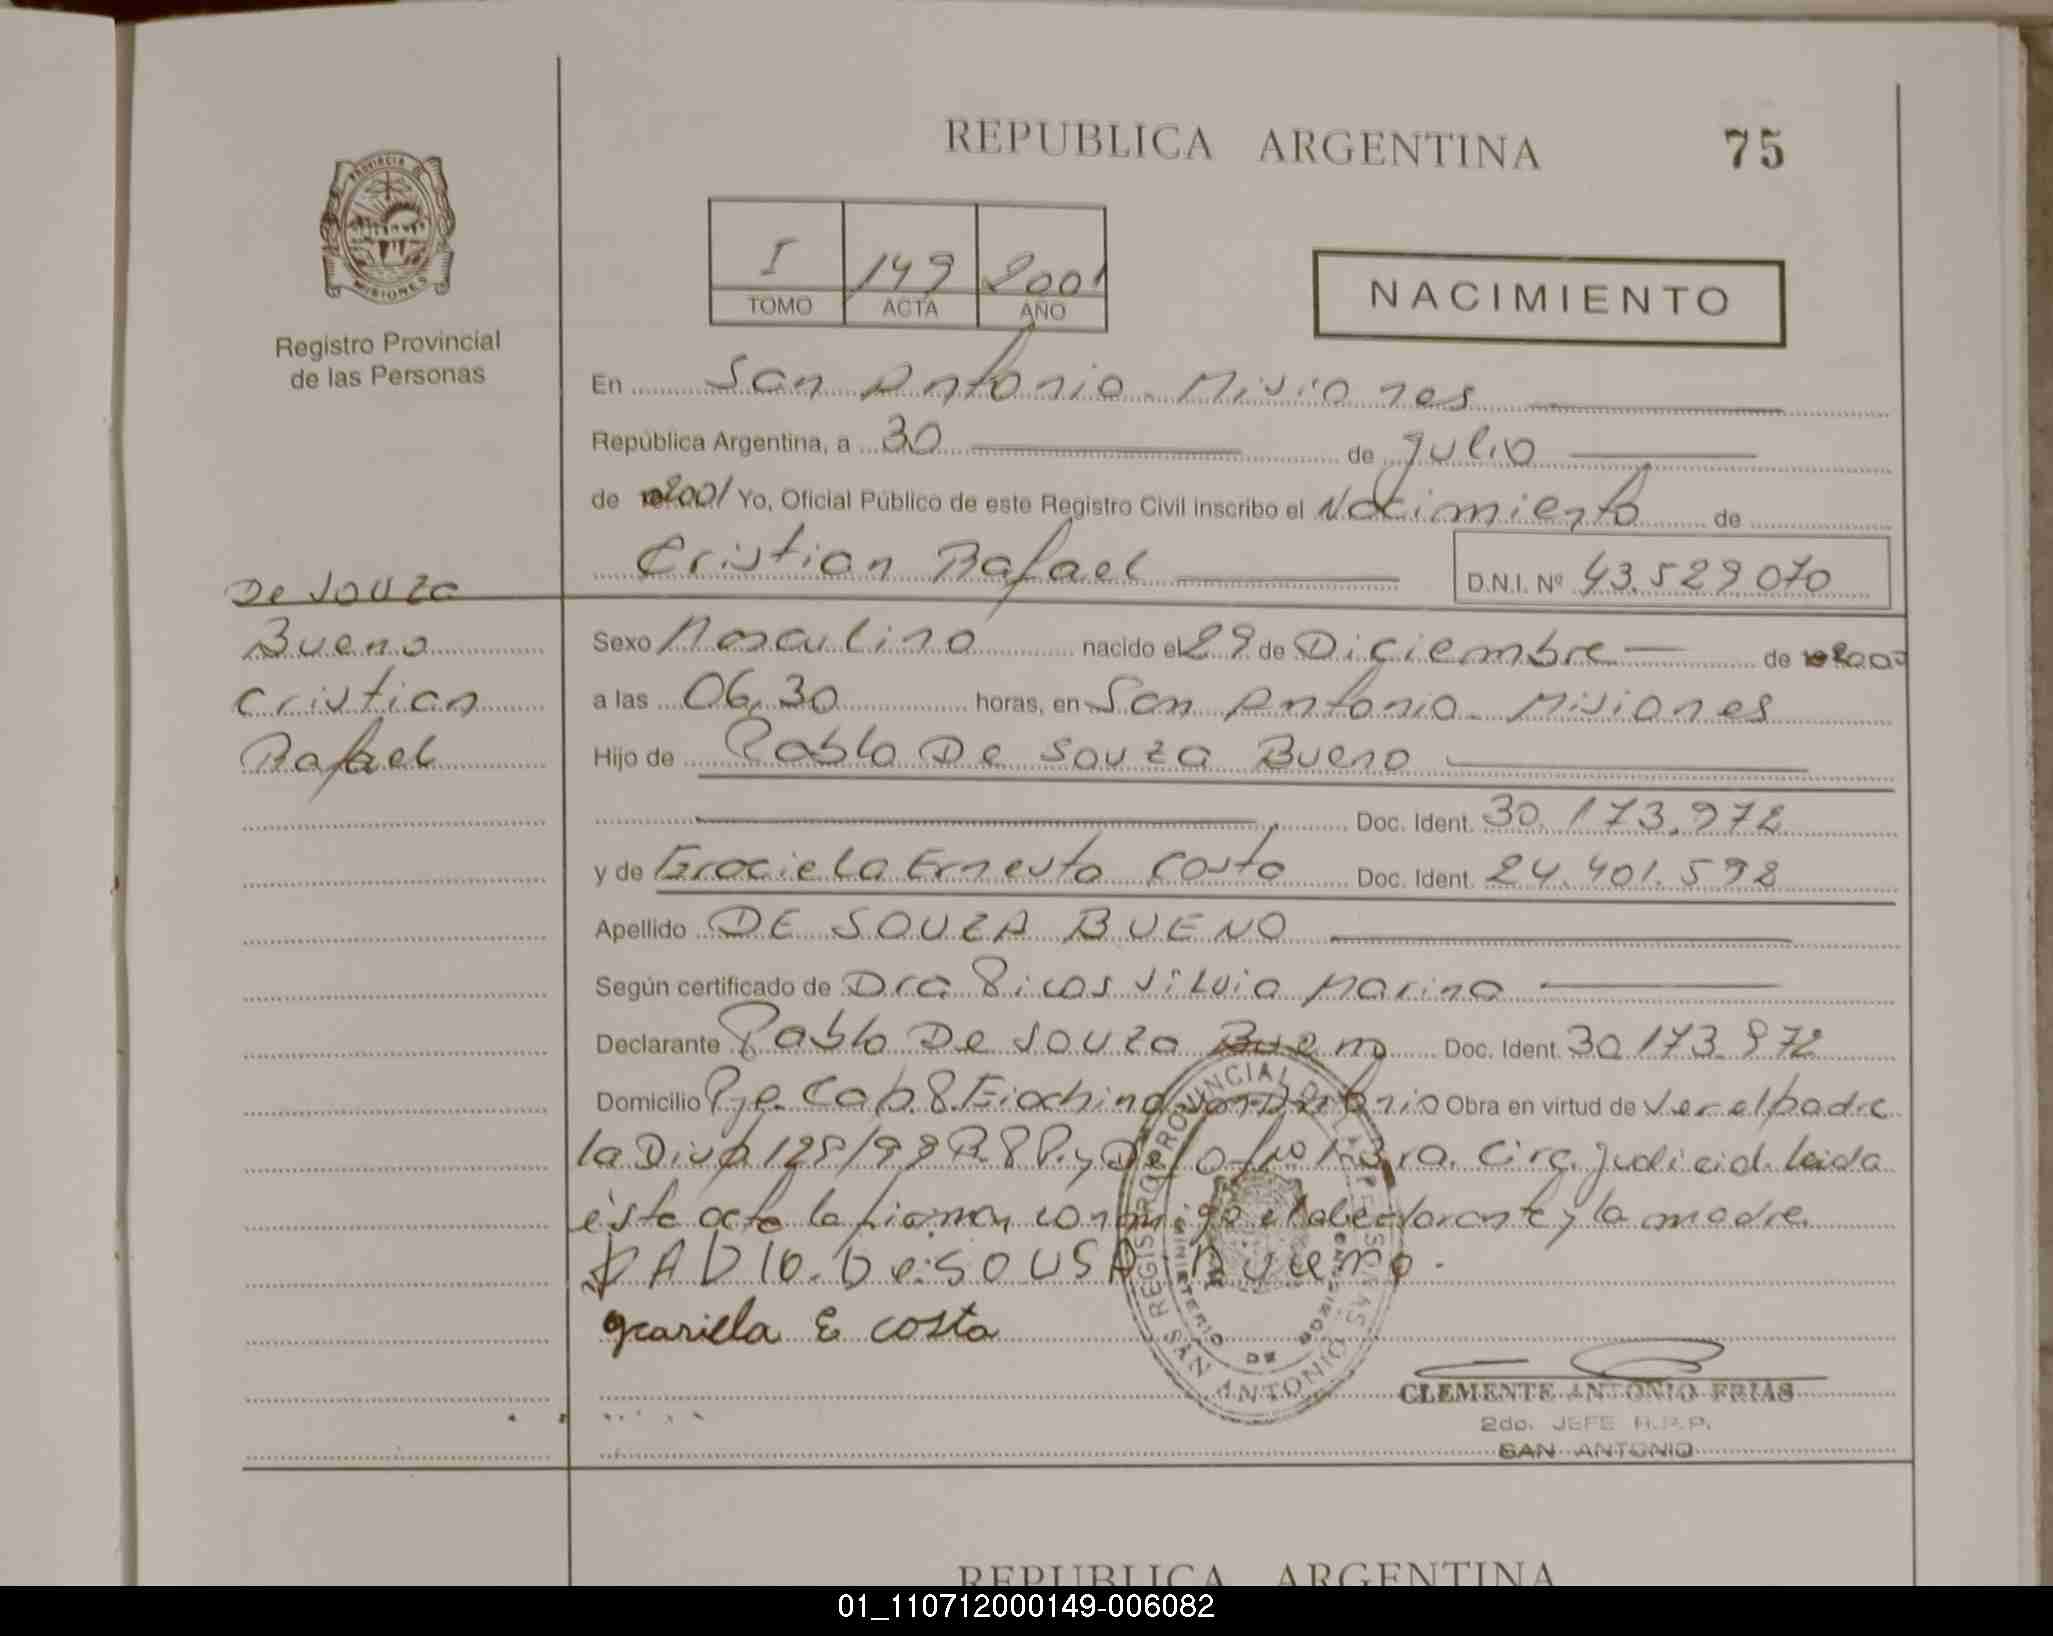 REPUBLICA ARGENTINA 75
PROVINCIA DE
MISIONES
Registro Provincial
de las Personas
I 149 2001
TOMO ACTA AÑO
NACIMIENTO
En San Antonio - Misiones
República Argentina, a 30 de julio
de 2001 Yo, Oficial Público de este Registro Civil inscribo el Nacimiento de
Cristian Rafael D.N.I. Nº 43.529070
De Souza
Bueno
Cristian
Rafael
Sexo Masculino nacido el 29 de Diciembre de 2000
a las 06,30 horas, en San Antonio - Misiones
Hijo de Pablo De Souza Bueno
Doc. Ident. 30.173.972
y de Graciela Ernesta Costa Doc. Ident. 24.401.598
Apellido DE SOUZA BUENO
Según certificado de Dra Silvia Marina
Declarante Pablo De Souza Bueno Doc. Ident. 30.173.972
Domicilio San Antonio Obra en virtud de ser el padre
la Disp 128/98 R.P.P. y 3ra. Circ. judicial leida
ésta acta la firman conmigo el declarante y la madre.
PABlo. De. SOUSA Bueno.
graciela E costa
REGISTRO PROVINCIAL DE LAS PERSONAS
MINISTERIO DE GOBIERNO
SAN ANTONIO
CLEMENTE ANTONIO FRIAS
2do. JEFE R.P.P.
SAN ANTONIO
REPUBLICA ARGENTINA
01_110712000149-006082